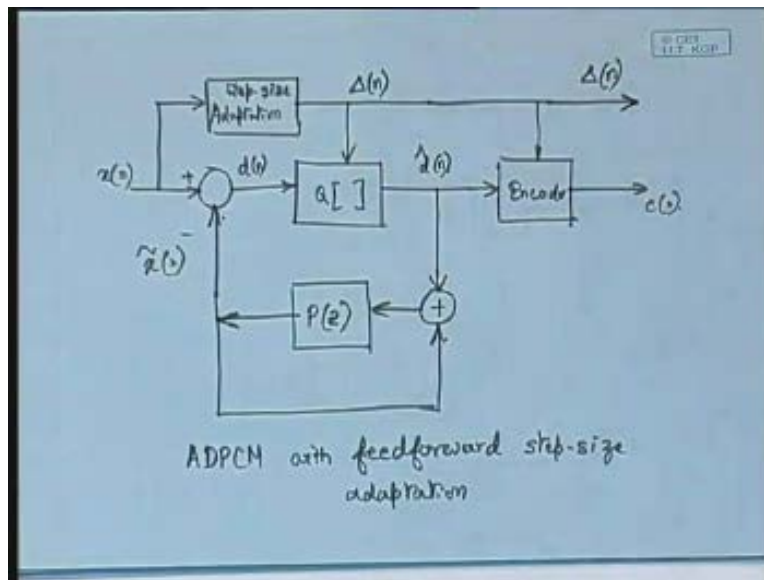 © CET
I.I.T. KGP
Step-size
Adaptation
Δ(n)
Δ(n)
x(n)
+
d(n)
Q[ ]
d̂(n)
Encoder
c(n)
x̃(n)
-
P(z)
+
ADPCM with feedforward step-size
adaptation